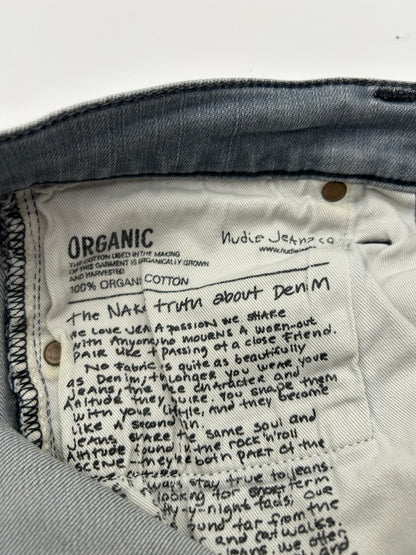 ORGANIC
THE COTTON USED IN THE MAKING
OF THIS GARMENT IS ORGANICALLY GROWN
AND HARVESTED
100% ORGANIC COTTON
Nudie Jeans co
www.nudie
The NAK truth about Denim
We love JEA A PASSION WE SHARE
with Anyone MOURNS A WORN-OUT
PAIR like passing of a close Friend.
No Fabric quite as beautifully
as Denim, longer you wear your
Jeans, the character and
Attitude they uire. You shape them
with your style, and they become
Like a second in.
Jeans share same soul and
Attitude the rock'n'roll
scene they both part of the
culture.
ways stay true to jeans.
looking for short term
ty-u-night fads. Our
und far from the
and catwalks.
often